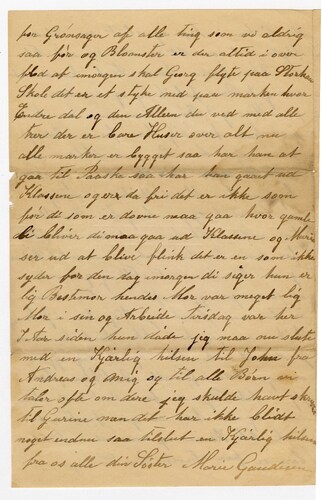 for Grønsager af alle ting som vi aldrig
saa før og Blomster er der altid i over
flod af imorgen skal Georg flyte paa Storken
Skole det er et styke ned paa marken hvor
Endre dal og den Alleen du ved med alle
trer der er bare Huser over alt nu
alle marker er bygget saa har han at
gaa til Paaske saa har han gaaet ud
Klassene og er da fri det er ikke som
før di som er dovne maa gaa hvor gamle
di bliver di maa gaa ud Klassene og
ser ud at blive flink det er en som ikke
syder for den dag imorgen di siger hun er
lig Beshmor hendes Mor var meget lig
Mor i sin og Arbeide tirsdag var her
7 Aar siden hun døde jeg maa nu slute
med en Kjærlig hilsen til John fra
Andreas og mig og til alle Børn vi
taler ofte om dere jeg skulde havt
til Gurine men det har ikke blidt
noget endnu saa tilslut en Kjærlig hilsen
fra os alle din Sister Marie Gundersen